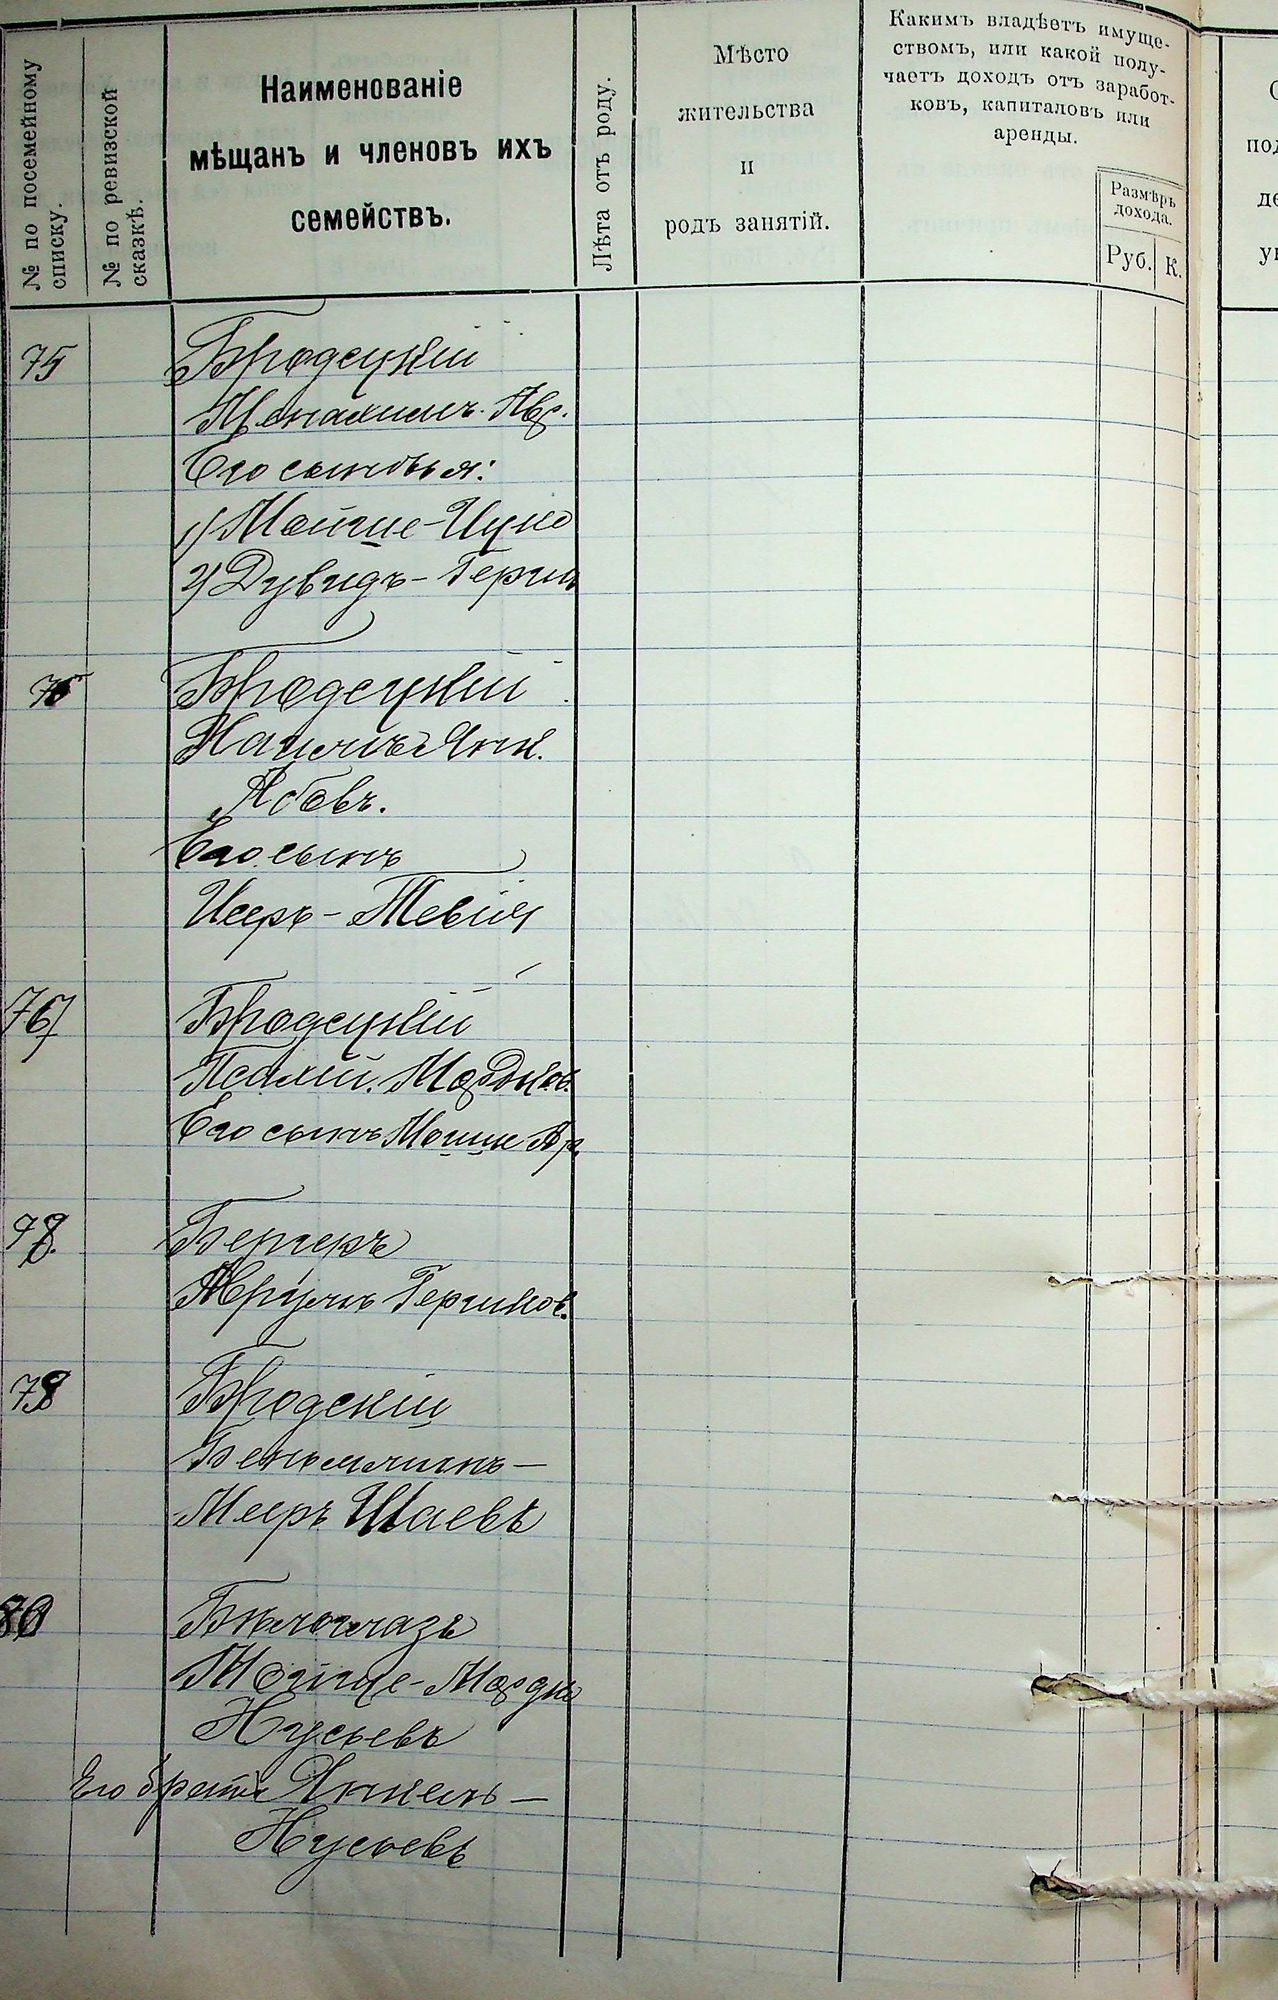 № по посемейному
списку.
№ по ревизской
сказкѣ.
Наименованіе
мѣщанъ и членовъ ихъ
семействъ.
Лѣта отъ роду.
Мѣсто
жительства
и
родъ занятій.
Какимъ владѣетъ имуще-
ствомъ, или какой полу-
чаетъ доходъ отъ заработ-
ковъ, капиталовъ или
аренды.
Размѣръ
дохода.
Руб.
К.
75 Бродецкій
Менахимъ Авр.
Его сыновья:
1) Мойше-Ицко
2) Дувидъ-Герш
76 Бродецкій
Хаимъ Янк.
Абовъ.
Его сынъ
Исеръ-Тевій
77 Бродецкій
Псалій. Мордков.
Его сынъ Мойше Ар.
78. Бергеръ
Аврумъ Гершков.
79 Бродскій
Беньяминъ-
Мееръ Шаевъ
80 Бѣлоглазъ
Мойше-Мордко
Нусьевъ
Его братъ Янкель-
Нусьевъ